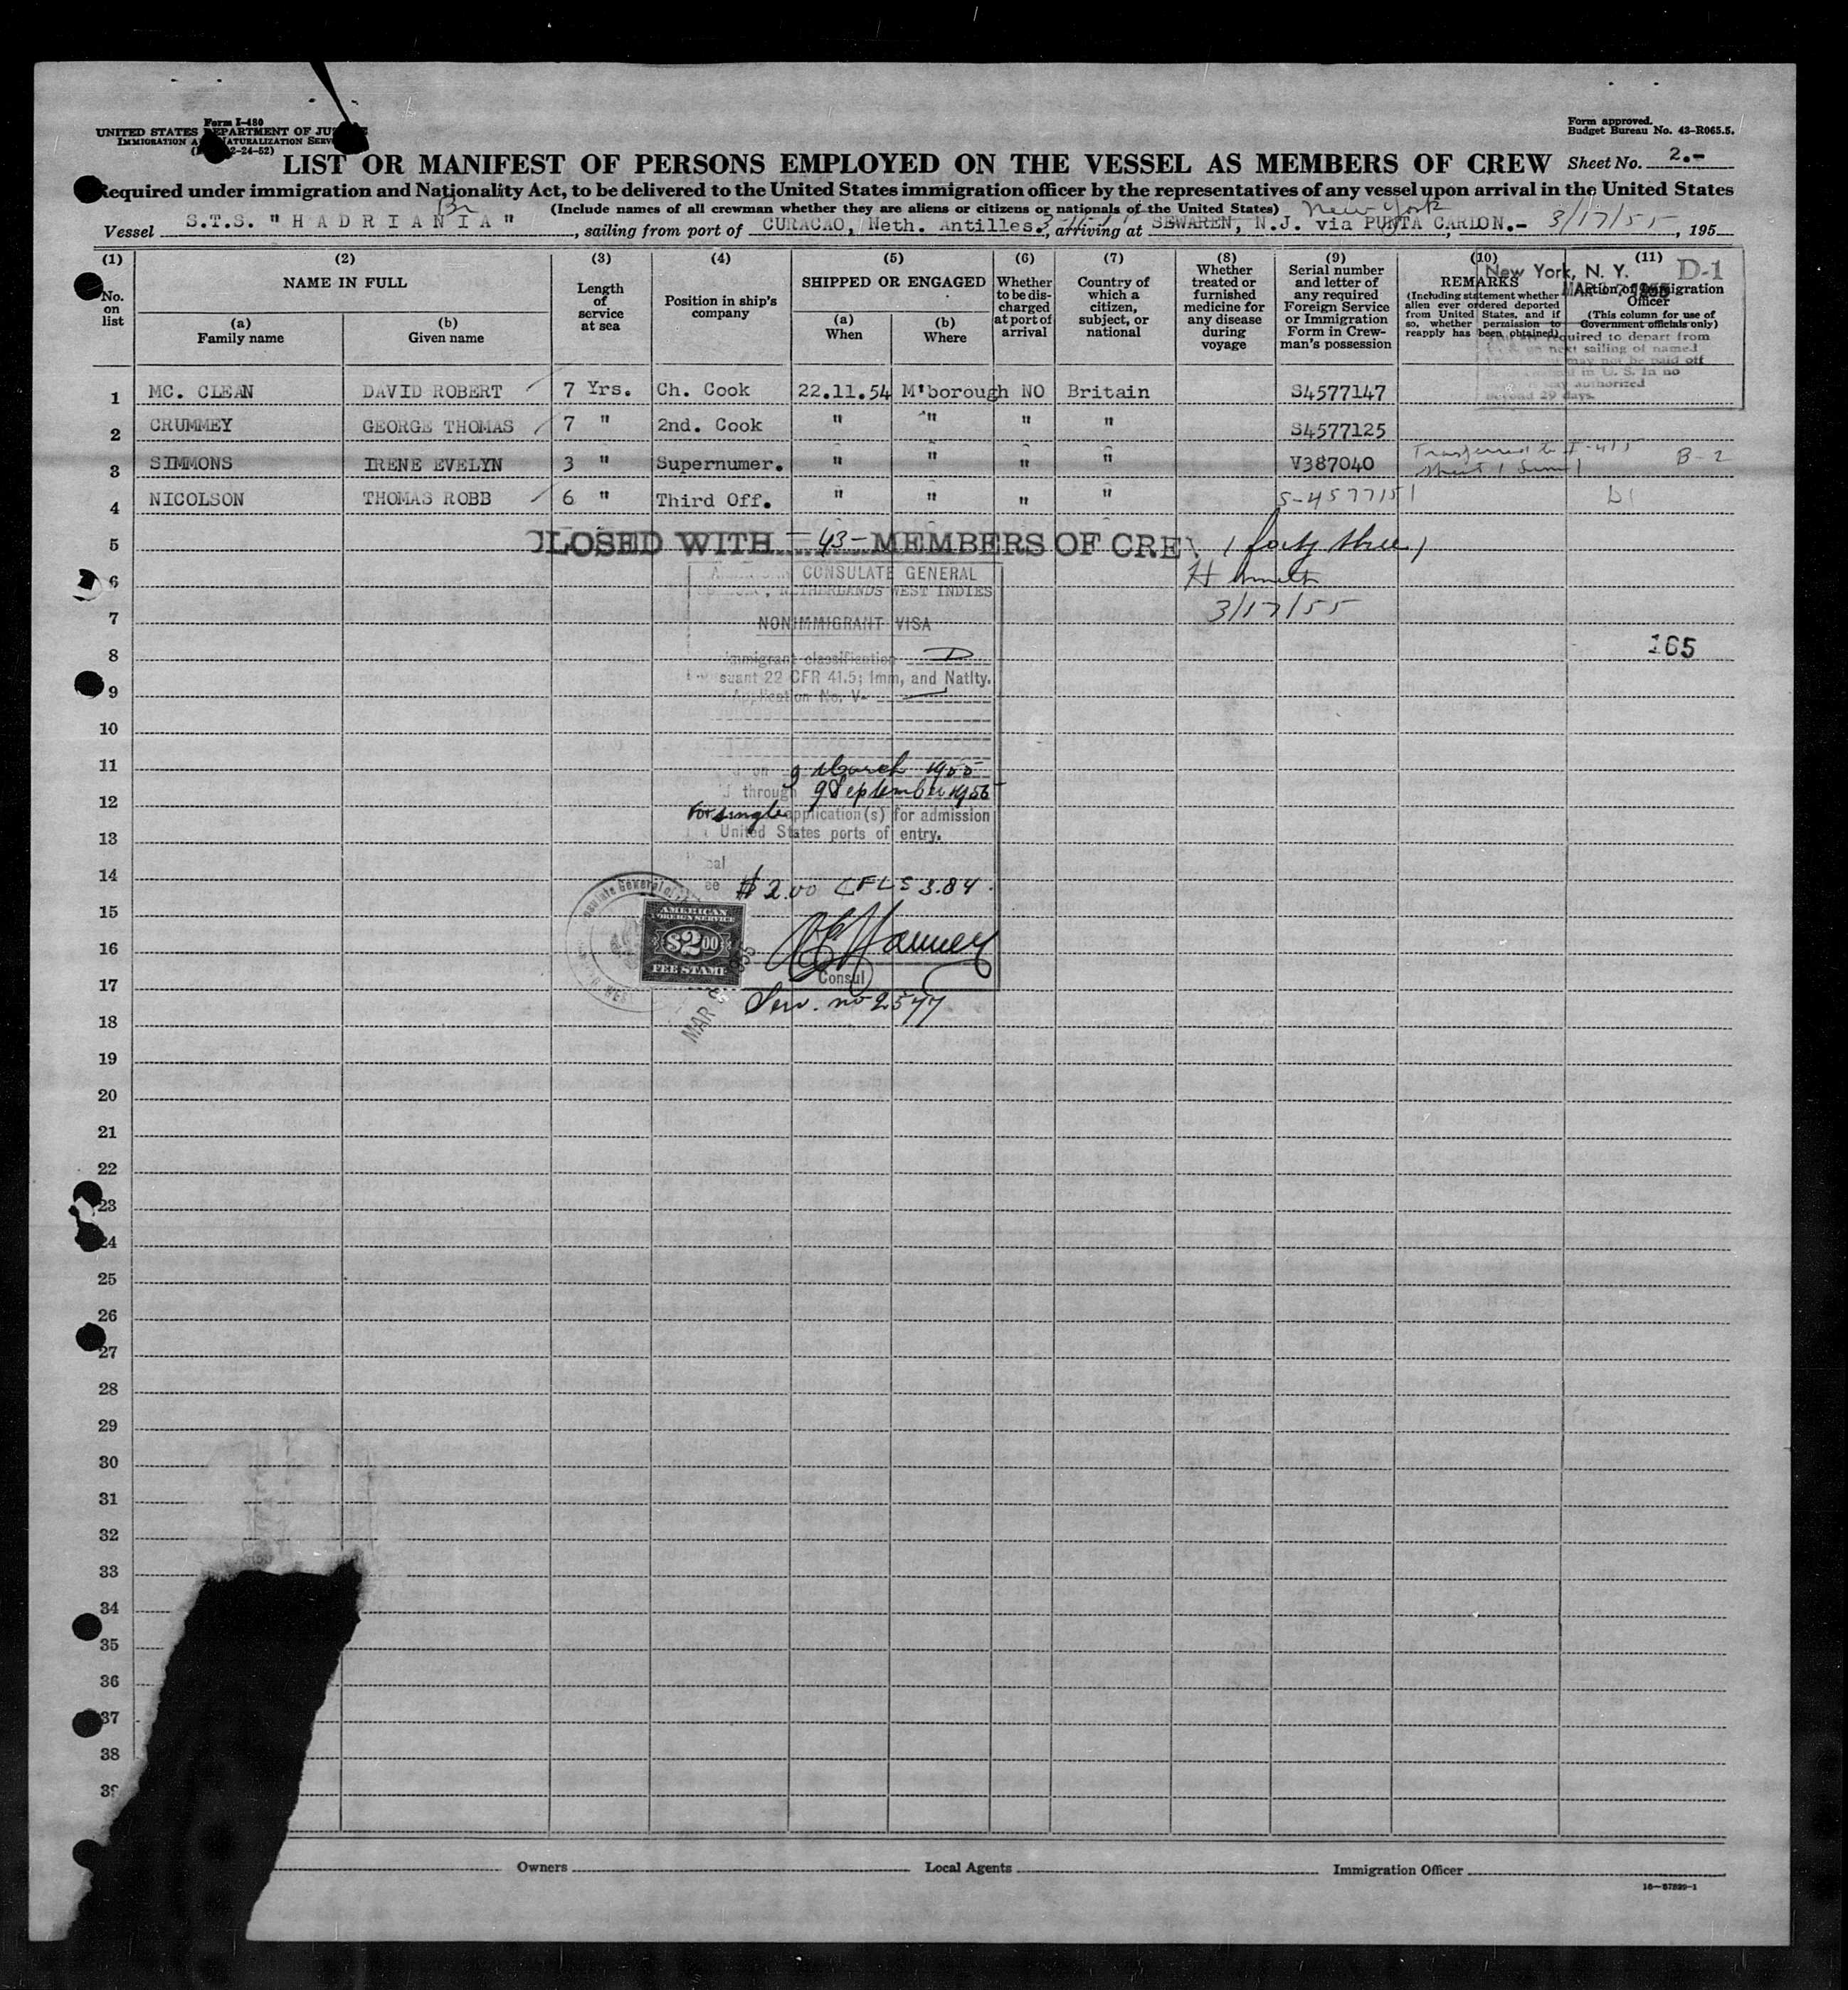 Form I-480
UNITED STATES DEPARTMENT OF JUSTICE
IMMIGRATION AND NATURALIZATION SERVICE
2-24-52)
Form approved.
Budget Bureau No. 43-R065.5.
LIST OR MANIFEST OF PERSONS EMPLOYED ON THE VESSEL AS MEMBERS OF CREW Sheet No. 2.-
Required under immigration and Nationality Act, to be delivered to the United States immigration officer by the representatives of any vessel upon arrival in the United States
(Include names of all crewman whether they are aliens or citizens or nationals of the United States)
Br New York
Vessel S.T.S. "HADRIANIA", sailing from port of CURACAO, Neth. Antilles., arriving at SEWAREN, N.J. via PUNTA CARDON.- 3/17/55, 195
(1) No. on list
(2) NAME IN FULL
(a) Family name
(b) Given name
(3) Length of service at sea
(4) Position in ship's company
(5) SHIPPED OR ENGAGED
(a) When
(b) Where
(6) Whether to be discharged at port of arrival
(7) Country of which a citizen, subject, or national
(8) Whether treated or furnished medicine for any disease during voyage
(9) Serial number and letter of any required Foreign Service or Immigration Form in Crewman's possession
(10) REMARKS (Including statement whether alien ever ordered deported from United States, and if so, whether permission to reapply has been obtained)
(11) Action of Immigration Officer (This column for use of Government officials only)
New York, N. Y. D-1
required to depart from
next sailing of named
may not be paid off
in U. S. In no
authorized
beyond 29 days.
1 MC. CLEAN DAVID ROBERT 7 Yrs. Ch. Cook 22.11.54 M'borough NO Britain S4577147
2 CRUMMEY GEORGE THOMAS 7 " 2nd. Cook " " " " S4577125
3 SIMMONS IRENE EVELYN 3 " Supernumer. " " " " V387040 Transferred to I-415 sheet 1 B-2
4 NICOLSON THOMAS ROBB 6 " Third Off. " " " " S-4577151 D1
5 CLOSED WITH -43- MEMBERS OF CREW (forty three)
6
3/17/55
7
8 165
9
10
11
12
13
14
15
16
17
18
19
20
21
22
23
24
25
26
27
28
29
30
31
32
33
34
35
36
37
38
39
CONSULATE GENERAL
NETHERLANDS WEST INDIES
NONIMMIGRANT VISA
immigrant classification D
suant 22 CFR 41.5; Imm, and Natlty.
Application No. V-
on 9 March 1955
through 9 September 1955
For single application(s) for admission
United States ports of entry.
$2.00 CFLS 3.84
AMERICAN
FOREIGN SERVICE
$2.00
FEE STAMP
Consul
Serv. no 2577
MAR
Owners
Local Agents
Immigration Officer
16-67829-1